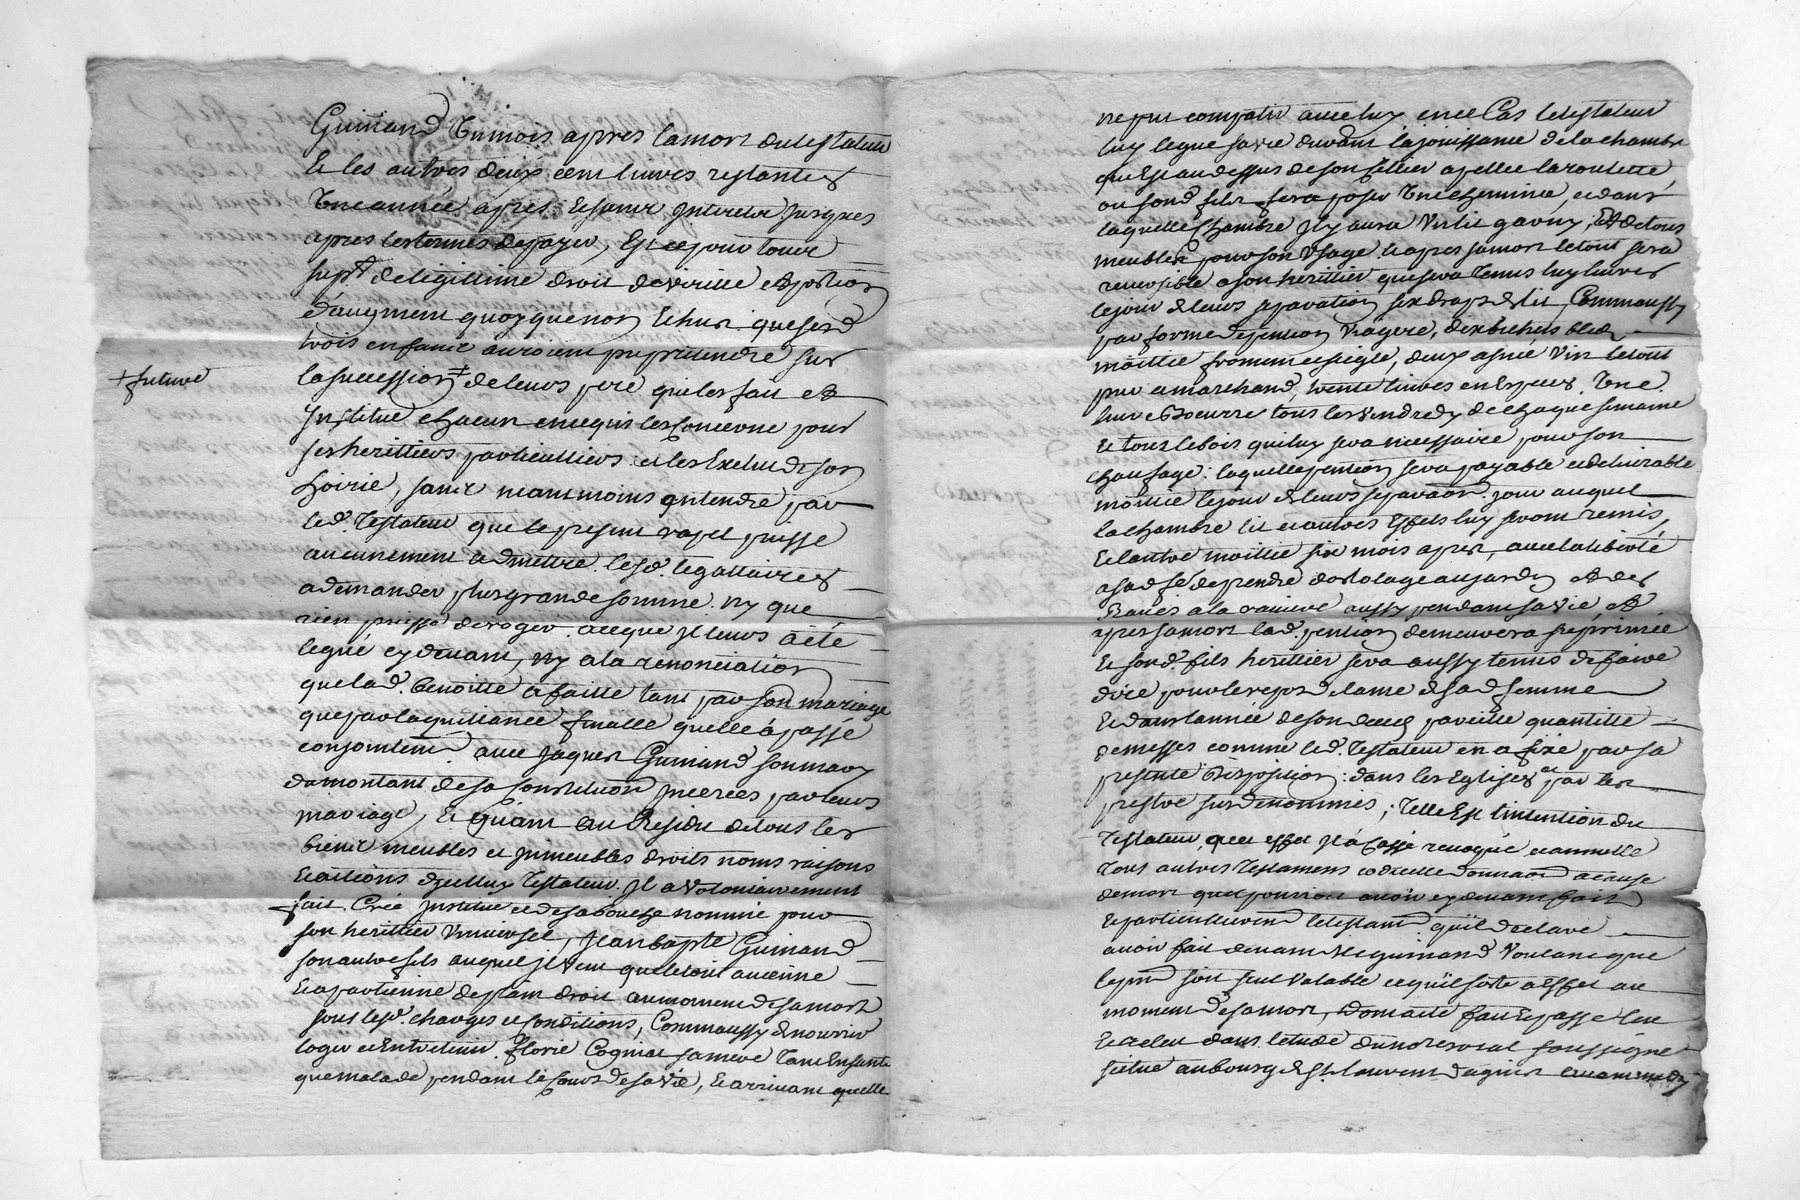 Guinand un mois apres la mort du testateur
Et les autres deux cent livres restantes
Une année apres Et sans Interets Jusques
apres les termes de payer, Et ce pour toute
supt. de legittime droit de virille et portion
d'augment quoyque non Echus que ses d.
trois enfants auroient pu pretendre sur
la succession ‡ de leurs pere qui les fait et
+ future
Institue chacun en ce qui les Concerne pour
ses herittiers particulliers et les Exclud de son
hoirie, sans neantmoins entendre par
led. Testateur que le present rapel puisse
aucunement admettre lesd. legattaires
a demander plus grande somme ny que
rien puisse deroger a ce que Il leurs a été
legué cy devant, ny a la renonciation
que lad. Benoitte a faitte tant par son mariage
que par la quittance finalle quelle à passé
conjointemt. avec Jaques Guinand son mary
du montant de sa Constitution Inserées par leurs
mariage, Et quant au Residu de tous les
biens meubles et Immeubles droits noms raisons
Et actions d'Icelluy Testateur Il a volontairement
fait Créé Institué et de sa bouche nommé pour
son herittier Universel, Jean Bapte Guinand
son autre fils auquel Il veut que le tout avienne
Et apartienne de plein droit au moment de sa mort
sous lesd. charges et Conditions, Comm'aussy de nourrir
loger et Entretenir Florie Cognat sa mere Tant En santé
que malade pendant le Cours de sa vie, Et arrivant quelle
ne put compatir avec luy en ce Cas le testateur
luy legue sa vie durant la jouissance de la chambre
qui Est au dessus de son Cellier apellée la roulette
ou sond. fils fera poser Une Cheminée, et dans
laquelle Chambre Il y aura Un lit garny, Et de tous
meubles pour son Usage Et apres sa mort le tout sera
reversible a son herittier qui sera Tenus luy livrer
le jour de leurs separation six draps de lit, Comm'aussy
par forme de pention Viagere, dix bichets bled
moittie froment et seigle, deux asnée Vin le tout
pur et marchand, trente livres en Espèces, Une
livre de beurre tous les Vendredy de Chaque semaine
Et tous le bois qui luy sera necessaire pour son
chaufage: laquelle pention sera payable et delivrable
moittie le jour de leurs separaon. jour auquel
la chambre lit et autres Effets luy seront remis,
Et l'autre moittie six mois apres, avec la liberté
a sad. fe. de prendre d'ortolage au jardin et des
Raves a la raviere aussy pendant sa vie Et
apres sa mort lad. pention demeurera suprimée
Et sond. fils herittier sera aussy tenus de faire
dire pour le repos de l'ame de sad. femme
Et dans l'année de son deces pareille quantitté
de messes comme led. Testateur en a fixé par sa
presente disposition: dans les Eglises et par les
prestre surdenommés; Telle Est l'intention du
Testateur, a cet effet Il a Cassé revoqué et annullé
Tous autres Testamens codicille donnaon. a cause
de mort quil pourroit avoir cy devant fait
Et particullierement le testamt. qu'il declare
avoir fait devant Me guinand Voulant que
le pnt. soit seul valable et qu'il sorte a Effet au
moment de sa mort, dont acte fait Et passé leu
Et releu dans l'etude du nore. royal soussigné
scitue au bourg de St. laurent d'agnier avant midy